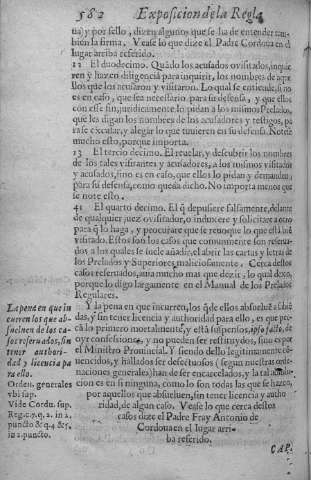 582 Exposicion de la Regla
ua) y por sello, dizen algunos que se ha de entender tam-
bien la firma. Vease lo que dize el Padre Cordoua en el
lugar arriba referido.
12 El duodecimo. Quãdo los acusados o visitados, inquie
ren y hazen diligencia para inquirir, los nombres de aque
llos que los acusaron y visitaron. Lo qual se entiende, si no
es en caso, que sea necessario para su defensa, y que ellos
con esse fin, juridicamente lo pidan a los mismos Prelados,
que les digan los nombres de los acusadores y testigos, pa
ra se escular, y alegar lo que tuuieren en su defensa. Notese
mucho esto, porque importa.
13 El tercio decimo. El reuelar, y descubrir los nombres
de los tales visitantes y acusadores, a los mismos visitados
y acusados, sino es en caso, que ellos lo pidan y demanden,
para su defensa, como queda dicho. No importa menos que
se note esto.
41 El quarto decimo. El q̃ depusiere falsamente, delante
de qualquier juez o visitador, o induxere y solicitare a otro
para q̃ lo haga, y procurare que se reuoque lo que está
visitado. Estos son los casos que comunmente son reserua-
dos a los quales se suele añadir, el abrir las cartas y letras de
los Prelados y Superiores, maliciosamente. Cerca destos
casos reseruados, auia mucho mas que dezir, lo qual dexo,
porque lo digo largamente en el Manual de los Prelados
Regulares.
La pena en que in
curren los que ab-
suelnen de los ca-
sos reseruados, sin
tener authori-
dad y licencia pa
ra ello.
Orden. generales
vbi sup.
Vide Cordu. sup.
Reg. c. 7. q. 2. in 2.
puncto & q. 4 & 5.
in 2. puncto.
Y la pena en que incurren, los q̃ de ellos absoluẽ a subdi
das, y sin tener licencia y authoridad para ello, es que pe-
cã lo primero mortalmente, y està suspensos, ipso facto, de
oyr confessiones, y no pueden ser restituydos, sino es por
el Ministro Prouincial. Y siendo dello legitimamente cõ-
uencidos, y hallados ser defectuosos (segun nuestras orde-
naciones generales) han de ser encarcelados, y la tal absolu-
cion es en si ninguna, como lo son todas las que se hazen,
por aquellos que absueluen, sin tener licencia y autho
ridad, de algun caso. Vease lo que cerca destos
casos dize el Padre Fray Antonio de
Cordoua en el lugar arri-
ba referido.
CAP.